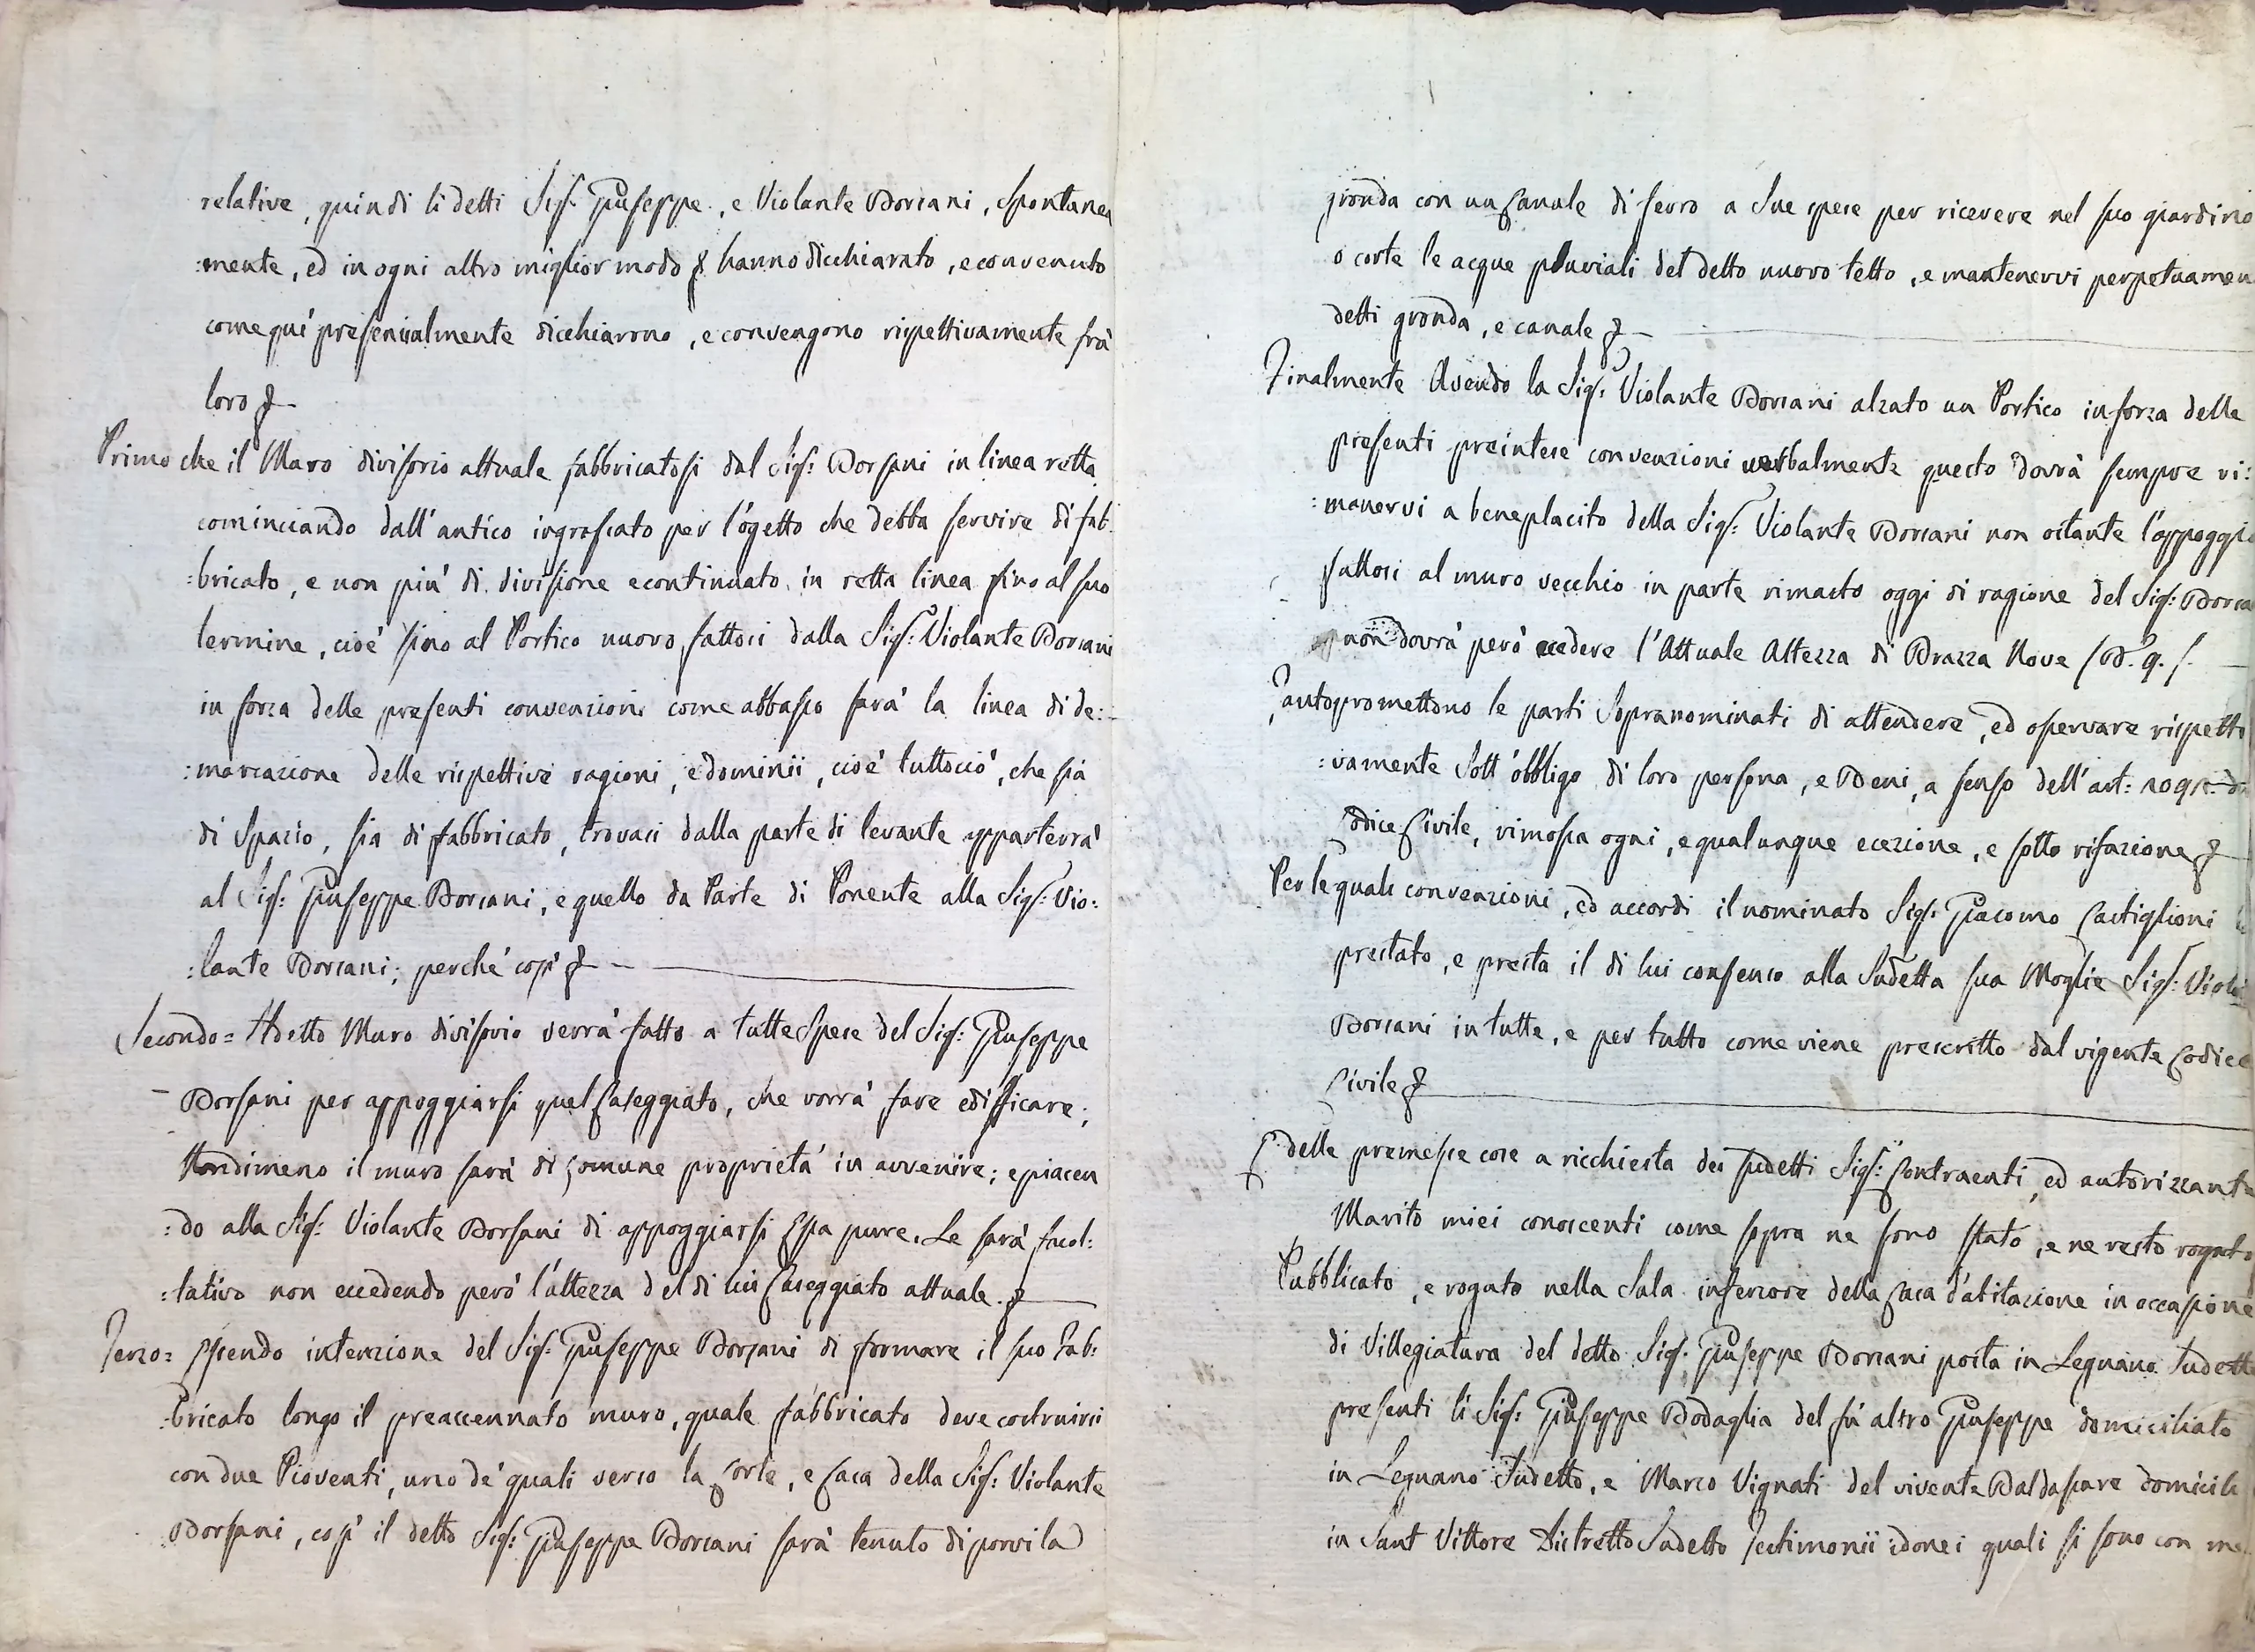 relative, quindi li detti Sig.ri Giuseppe, e Violante Borsani, Spontanea
:mente, ed in ogni altro miglior modo & hanno dicchiarato, e convenuto
come quì presenzialmente dicchiarono, e convengono rispettivamente frà
loro &
Primo che il Muro divisorio attuale fabbricatosi dal Sig: Borsani in linea retta
cominciando dall'antico ingrossato per l'ogetto che debba servire di fab:
:bricato, e non più di divisione e continuato in retta linea fino al suo
termine, cioè fino al Portico nuovo fattosi dalla Sig: Violante Borsani
in forza delle presenti convenzioni come abbasso sarà la linea di de:
:marcazione delle rispettive ragioni, e dominii, cioè tuttociò, che sia
di Spazio, sia di fabbricato, trovasi dalla parte di levante apparterrà
al Sig: Giuseppe Borsani, e quello da Parte di Ponente alla Sig: Vio:
:lante Borsani; perchè così &
Secondo = Il detto Muro divisorio verrà fatto a tutte Spese del Sig: Giuseppe
Borsani per appoggiarsi quel Caseggiato, che vorrà fare edifficare;
Nondimeno il muro sarà di comune proprietà in avvenire; e piacen
:do alla Sig: Violante Borsani di appoggiarsi Essa pure, Le sarà facol:
:tativo non eccedendo però l'altezza del di lui Caseggiato attuale &
Terzo = Essendo intenzione del Sig: Giuseppe Borsani di formare il suo Fab:
:bricato longo il preaccennato muro, quale fabbricato deve costruirsi
con due Pioventi, uno de' quali verso la Corte, e Casa della Sig: Violante
Borsani, così il detto Sig: Giuseppe Borsani sarà tenuto di porvi la
gronda con un Canale di ferro a Sue spese per ricevere nel suo giardino
o corte le acque pluviali del detto nuovo tetto, e mantenervi perpetuamen
detti gronda, e canale &
Finalmente Avendo la Sig: Violante Borsani alzato un Portico in forza delle
presenti preintese convenzioni verbalmente questo dovrà sempre ri:
:manervi a beneplacito della Sig: Violante Borsani non ostante l'appoggio
fattosi al muro vecchio in parte rimasto oggi di ragione del Sig: Borsa
non dovrà però ecedere l'Attuale Altezza di Brazza Nove
Tanto promettono le parti Sopranominati di attendere, ed osservare rispetti
:vamente Sott'obbligo di loro persona, e Beni, a senso dell'art:
Codice Civile, rimossa ogni, e qualunque ecezione, e sotto rifazione &
Per le quali convenzioni, ed accordi il nominato Sig: Giacomo Castiglioni
prestato, e presta il di lui consenso alla Sudetta sua Moglie Sig: Viola
Borsani in tutte, e per tutto come viene prescritto dal vigente Codice
Civile &
E delle premesse cose a ricchiesta dei sudetti Sig: Contraenti, ed autorizzante
Marito miei conoscenti come sopra ne sono stato, e ne resto rogato
Pubblicato, e rogato nella Sala inferiore della Casa d'abitazione in occasione
di Villegiatura del detto Sig: Giuseppe Borsani posta in Legnano Sudetto
presenti li Sig: Giuseppe Bodaglia del fù altro Giuseppe domiciliato
in Legnano Sudetto, e Marco Vignati del vivente Baldassare domicili
in Sant Vittore Distretto Sudetto Testimonii idonei quali si sono con me